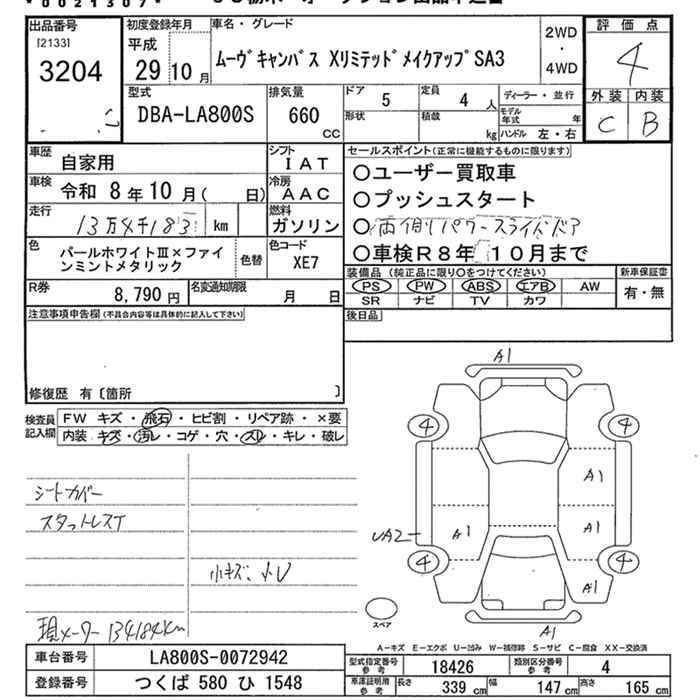 *0021307*
出品番号
[2133]
3204
初度登録年月
平成
29年10月
車名・グレード
ムーヴキャンバス XリミテッドメイクアップSA3
2WD
・
4WD
評価点
4
外装 内装
C B
型式
DBA-LA800S
排気量
660
CC
ドア 5
形状
定員 4 人
積載 kg
ディーラー・並行
モデル年式 年
ハンドル 左・右
車歴 自家用
シフト IAT
車検 令和 8年10月( 日)
冷房 AAC
走行 13万4千183 km
燃料 ガソリン
色 パールホワイトⅢ×ファインミントメタリック
色替
色コード XE7
R券 8,790円
名変通知期限 月 日
セールスポイント(正常に機能するものに限ります)
○ユーザー買取車
○プッシュスタート
○両側パワースライドドア
○車検R8年10月まで
装備品(純正品に限り○をつけてください)
新車保証書
PS PW ABS エアB AW
有・無
SR ナビ TV カワ
後日品
注意事項申告欄(不具合内容等は具体的に記入して下さい)
修復歴 有〔箇所 〕
検査員記入欄
FW キズ・飛石・ヒビ割・リペア跡・×要
内装 キズ・汚レ・コゲ・穴・スレ・キレ・破レ
シートカバー
スタットレスT
小キズ、凹
現メーター 134184km
A1
4 4
A1
A1 A1
UA2
4 4
A1
A1
スペア
A-キズ E-エクボ U-凹み W-補修跡 S-サビ C-腐食 XX-交換済
車台番号 LA800S-0072942
登録番号 つくば 580 ひ 1548
型式指定番号 参考 18426
類別区分番号 参考 4
車庫証明用 参考 長さ 339 cm 幅 147 cm 高さ 165 cm